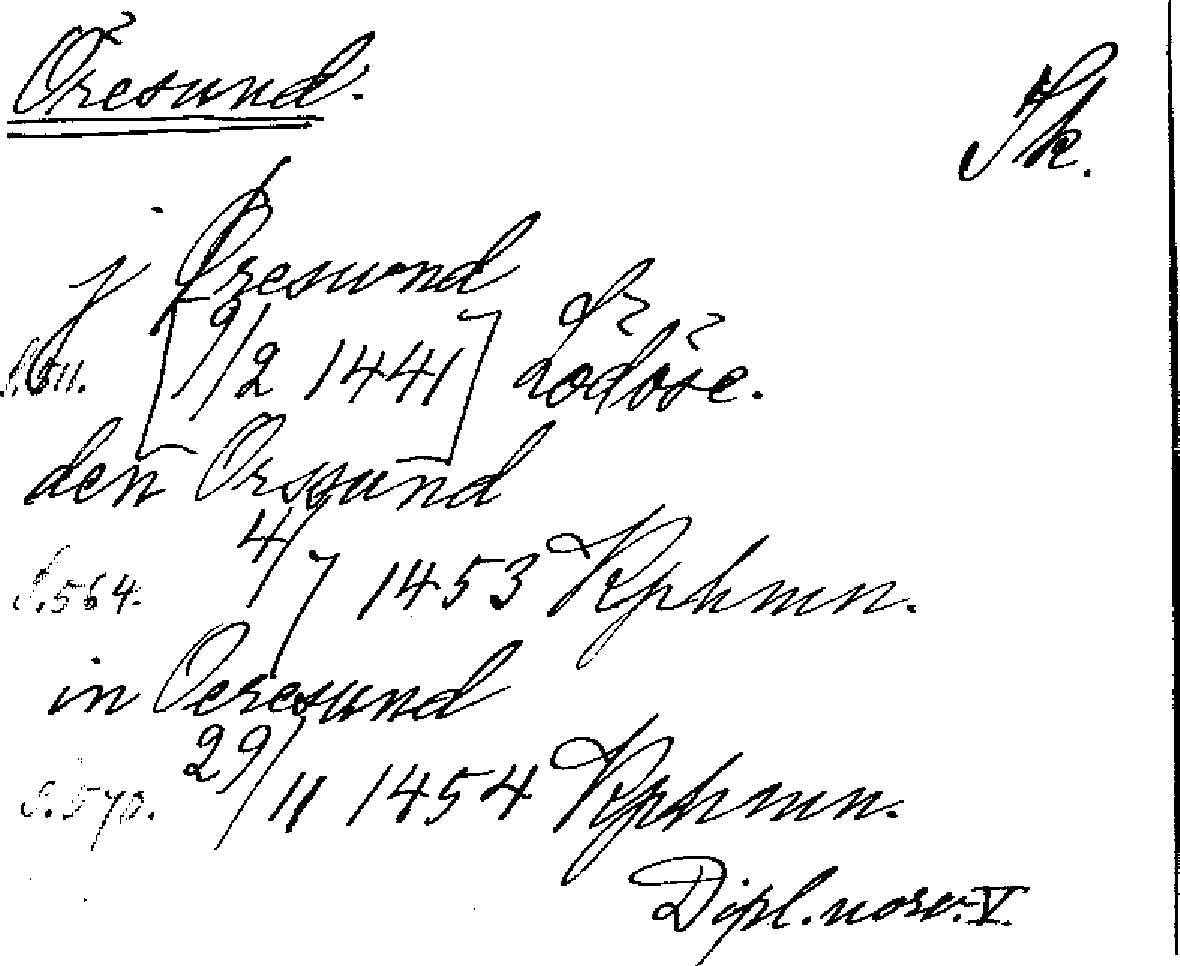 Öresund.
Sk.
j Øresund
[9/2 1441] Lödöse.
den Orssund
S.564. 4/7 1453 Kphmn.
in Oeresund
S.570. 29/11 1454 Kphmn.
Dipl. norv. V.